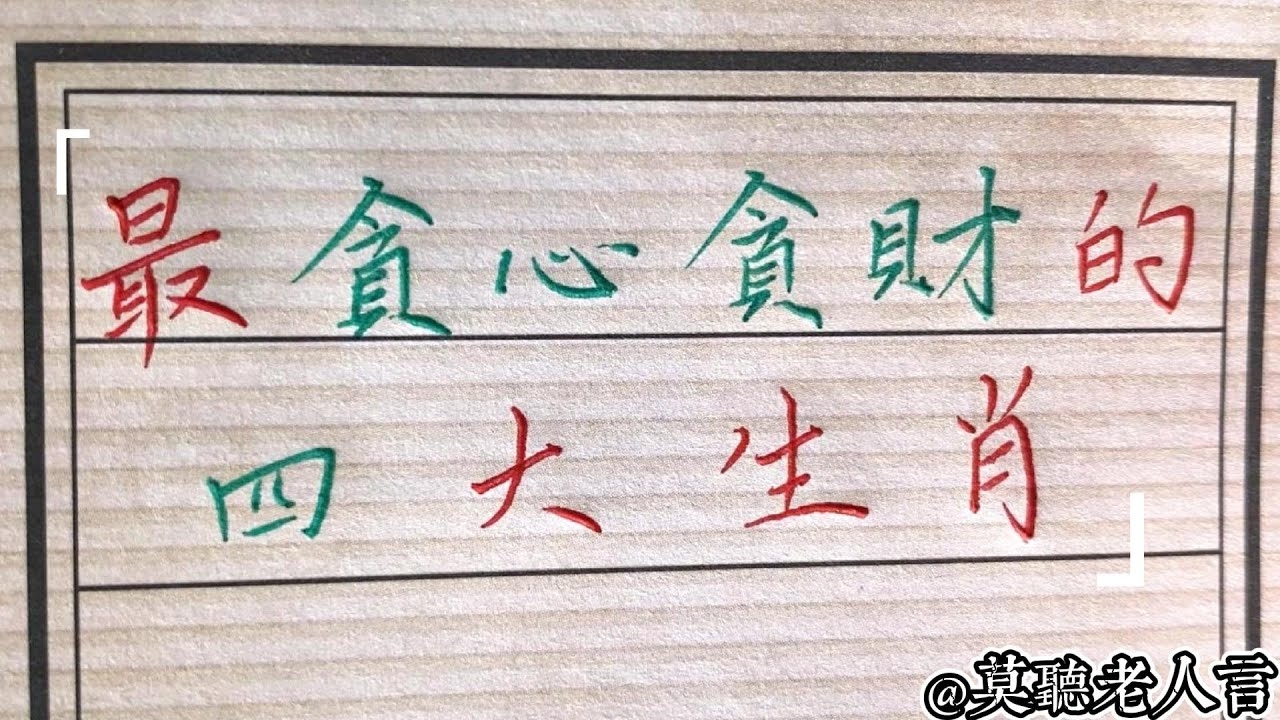 「最貪心貪財的
四大生肖」
@莫聽老人言